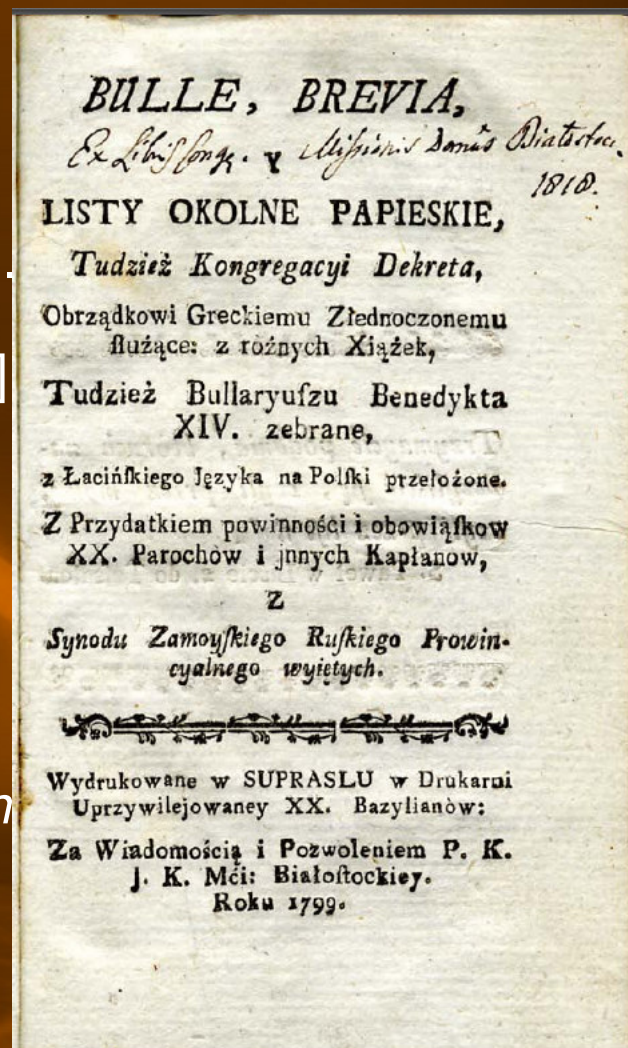 BULLE, BREVIA,
Ex Libris Cong. Missionis Domûs Białostoc.
Y
1818.
LISTY OKOLNE PAPIESKIE,
Tudzież Kongregacyi Dekreta,
Obrządkowi Greckiemu Złednoczonemu
ſlużące: z rożnych Xiążek,
Tudzież Bullaryuſzu Benedykta
XIV. zebrane,
z Łacińſkiego Języka na Polſki przełożone.
Z Przydatkiem powinności i obowiąſkow
XX. Parochòw i jnnych Kapłanow,
Z
Synodu Zamoyſkiego Ruſkiego Prowin-
cyalnego wyiętych.
Wydrukowane w SUPRASLU w Drukarni
Uprzywilejowaney XX. Bazylianòw:
Za Wiadomością i Pozwoleniem P. K.
J. K. Mći: Białoſtockiey.
Roku 1799.